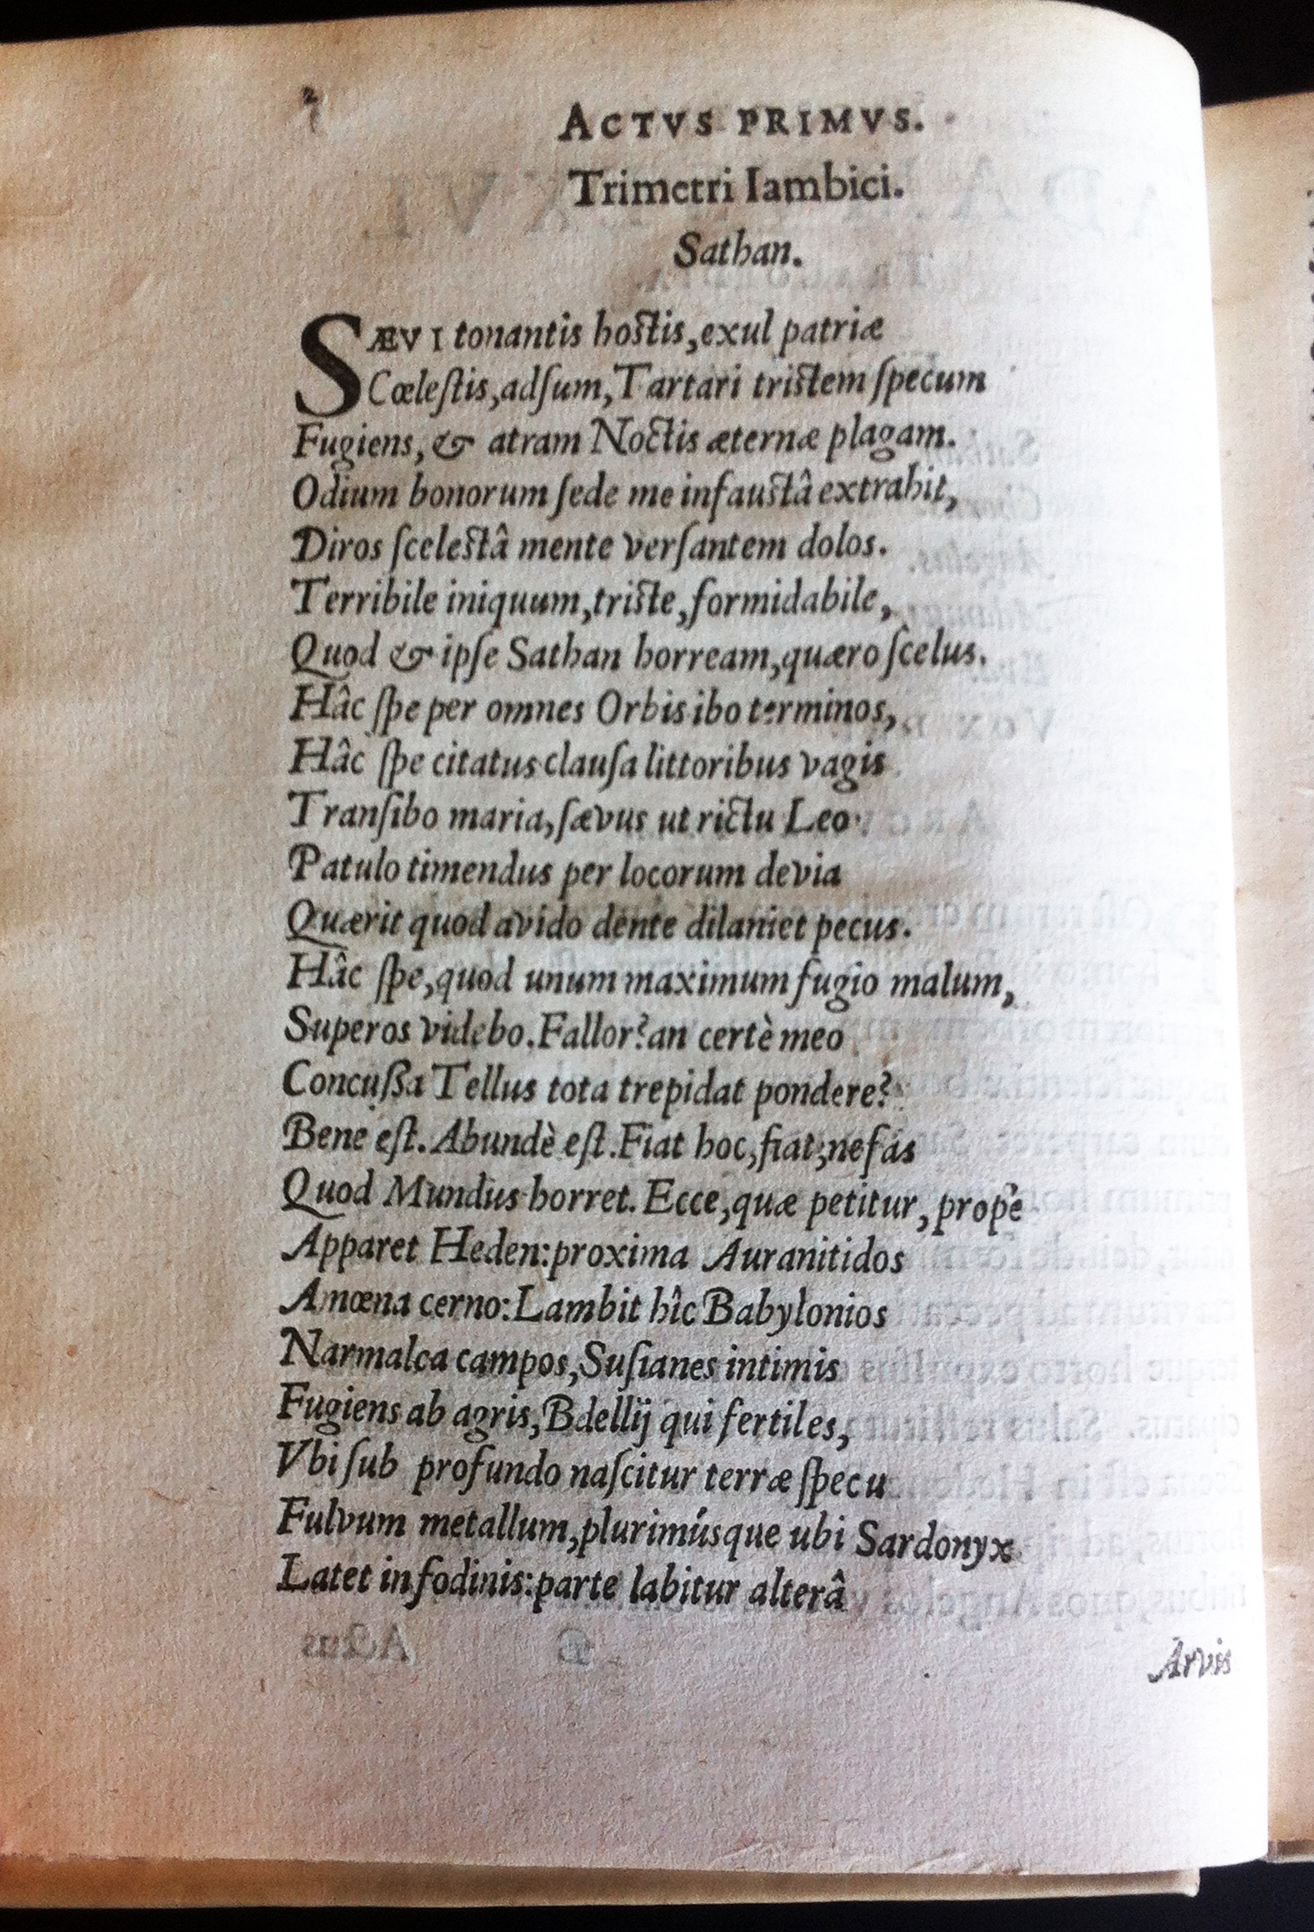 2
ACTVS PRIMVS.
Trimetri Iambici.
Sathan.
SÆVI tonantis hostis, exul patriæ
Cœleſtis, adſum, Tartari tristem ſpecum
Fugiens, & atram Noctis æternæ plagam.
Odium bonorum ſede me infaustâ extrahit,
Diros ſcelestâ mente verſantem dolos.
Terribile iniquum, triste, formidabile,
Quod & ipſe Sathan horream, quæro ſcelus.
Hâc ſpe per omnes Orbis ibo terminos,
Hâc ſpe citatus clauſa littoribus vagis
Tranſibo maria, ſævus ut rictu Leo
Patulo timendus per locorum devia
Quærit quod avido dente dilaniet pecus.
Hâc ſpe, quod unum maximum fugio malum,
Superos videbo. Fallor? an certè meo
Concuſſa Tellus tota trepidat pondere?
Bene eſt. Abundè eſt. Fiat hoc, fiat, nefas
Quod Mundus horret. Ecce, quæ petitur, propè
Apparet Heden: proxima Auranitidos
Amœna cerno: Lambit hîc Babylonios
Narmalca campos, Suſianes intimis
Fugiens ab agris, Bdellij qui fertiles,
Vbi ſub profundo naſcitur terræ ſpecu
Fulvum metallum, plurimúsque ubi Sardonyx
Latet in fodinis: parte labitur alterâ
Arvis